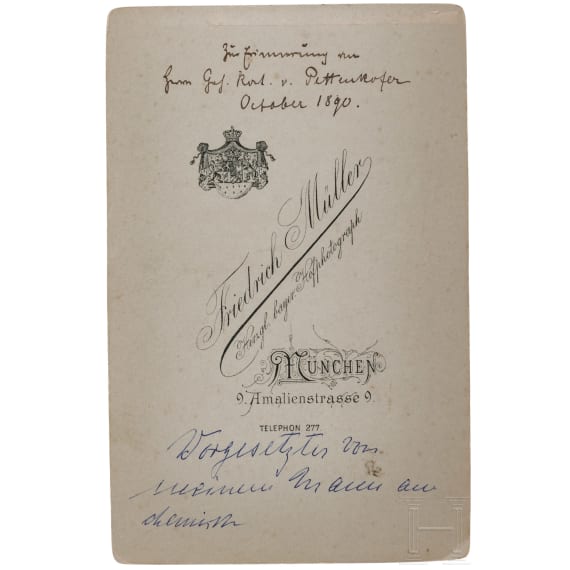 Zur Erinnerung an
Herrn Geh. Rat. v. Pettenkofer
October 1890.
Friedrich Müller
Herzgl. bayer. Hofphotograph
MÜNCHEN
9. Amalienstrasse 9.
TELEPHON 277
Vorgesetzter von
meinem Mann am
chemisch